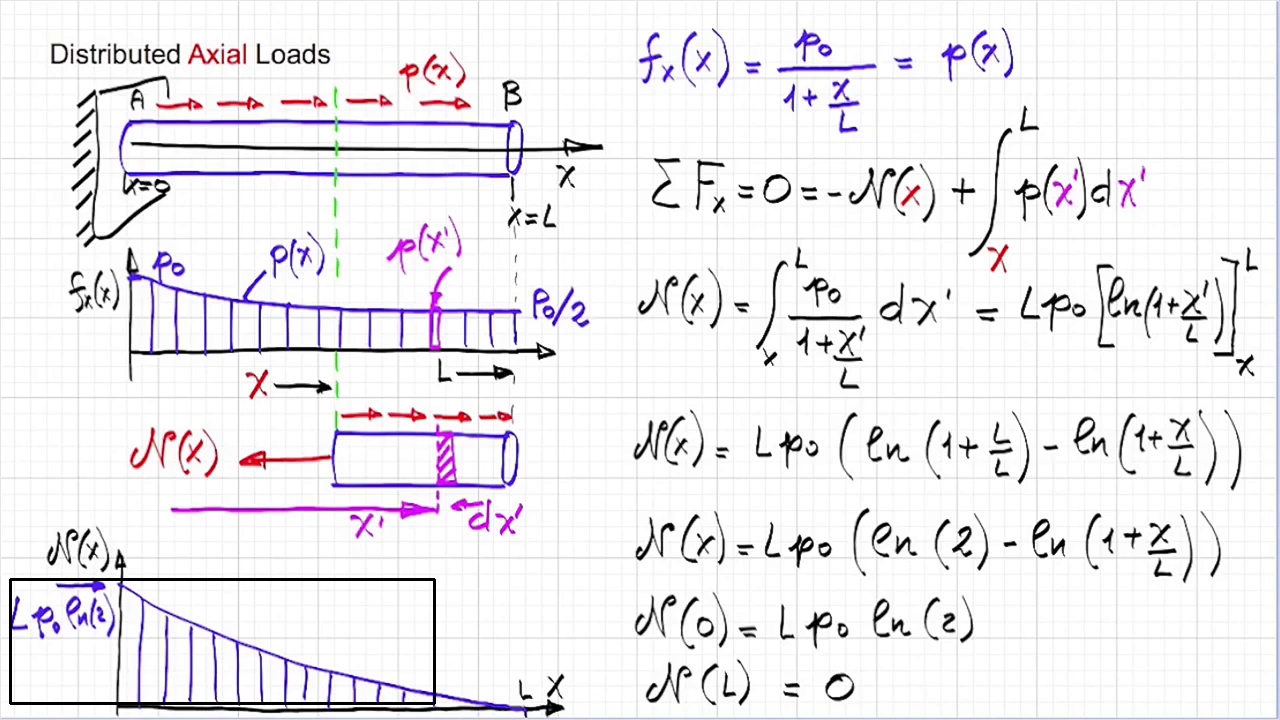 Distributed Axial Loads
p(x)
A
B
x=0
x
x=L
fx(x)
p0
p(x)
p(x')
p0/2
x
L
N(x)
x'
dx'
N(x)
Lp0 ln(2)
L x
fx(x) = p0/(1+x/L) = p(x)
ΣFx = 0 = -N(x) + ∫_x^L p(x')dx'
N(x) = ∫_x^L p0/(1+x'/L) dx' = Lp0 [ln(1+x'/L)]_x^L
N(x) = Lp0 (ln(1+L/L) - ln(1+x/L))
N(x) = Lp0 (ln(2) - ln(1+x/L))
N(0) = Lp0 ln(2)
N(L) = 0